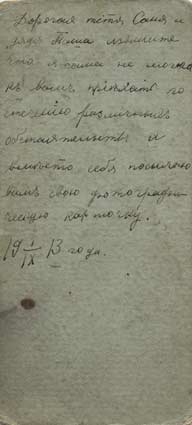 Дорогая тётя Саня и
дядя Тёша извините
что я сама не могла
къ вамъ приехать по
стечению различныхъ
обстоятельствъ и
вместо себя посылаю
вамъ свою фотографи
ческую карточку.
19 1/IX 13 года.